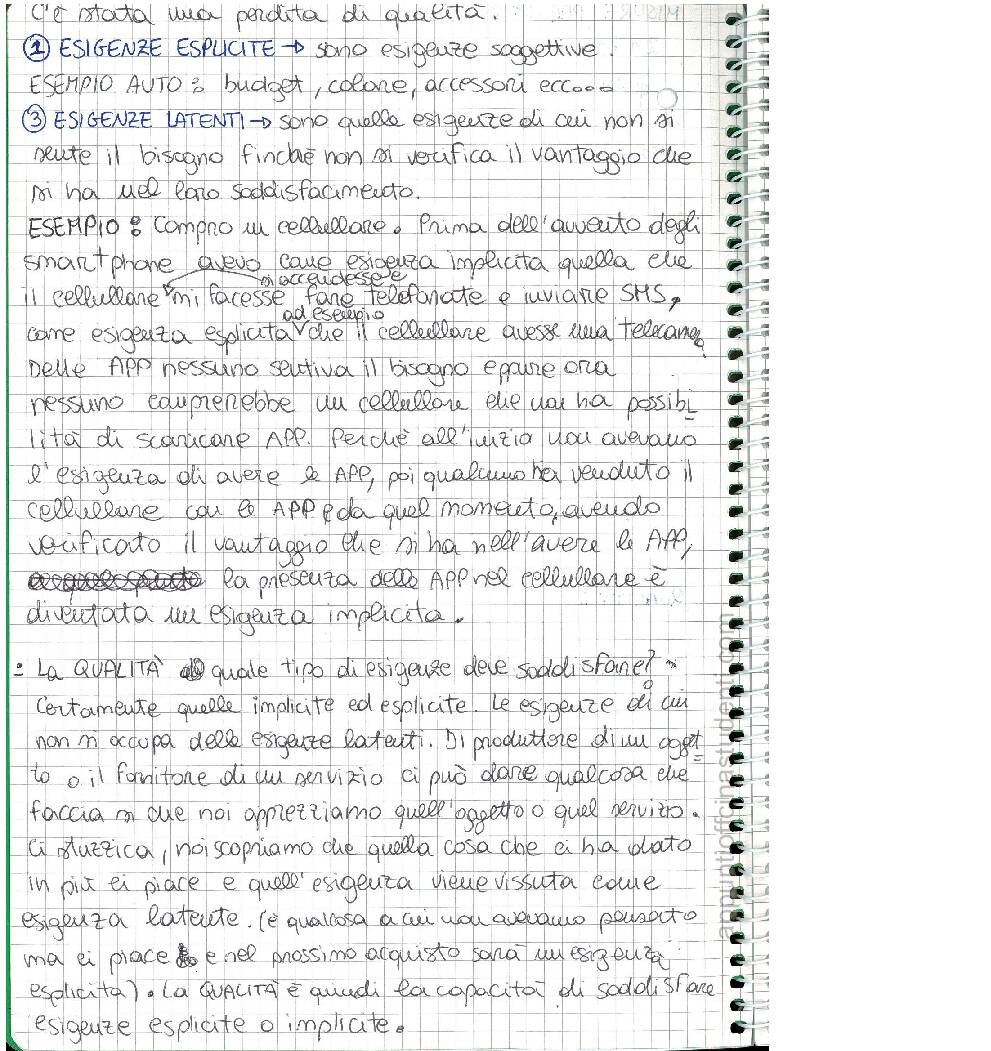 C'è stata una perdita di qualità.
② ESIGENZE ESPLICITE → sono esigenze soggettive.
ESEMPIO AUTO: budget, colore, accessori ecc....
③ ESIGENZE LATENTI → sono quelle esigenze di cui non si
sente il bisogno finchè non si verifica il vantaggio che
si ha nel loro soddisfacimento.
ESEMPIO: Compro un cellullare. Prima dell'avvento degli
smartphone avevo come esigenza implicita quella che
si accendesse e
il cellullare mi facesse fare telefonate e inviare SMS,
ad esempio
come esigenza esplicita che il cellullare avesse una telecamera.
Delle APP nessuno sentiva il bisogno eppure ora
nessuno comprerebbe un cellullare che non ha possibi
lità di scaricare APP. Perchè all'inizio non avevamo
l'esigenza di avere le APP, poi qualcuno ha venduto il
cellullare con le APP e da quel momento, avendo
verificato il vantaggio che si ha nell'avere le APP,
la presenza delle APP nel cellullare è
diventata un esigenza implicita.
: La QUALITÀ quale tipo di esigenze deve soddisfare?
Certamente quelle implicite ed esplicite. Le esigenze di cui
non si occupa delle esigenze latenti. Il produttore di un ogget
to o il fornitore di un servizio ci può dare qualcosa che
faccia si che noi apprezziamo quell'oggetto o quel servizio.
Ci stuzzica, noi scopriamo che quella cosa che ci ha dato
in più ci piace e quell'esigenza viene vissuta come
esigenza latente. (è qualcosa a cui non avevamo pensato
ma ci piace e nel prossimo acquisto sarà un esigenza
esplicita). La QUALITÀ è quindi la capacità di soddisfare
esigenze esplicite o implicite.
appuntiofficinastudenti.com